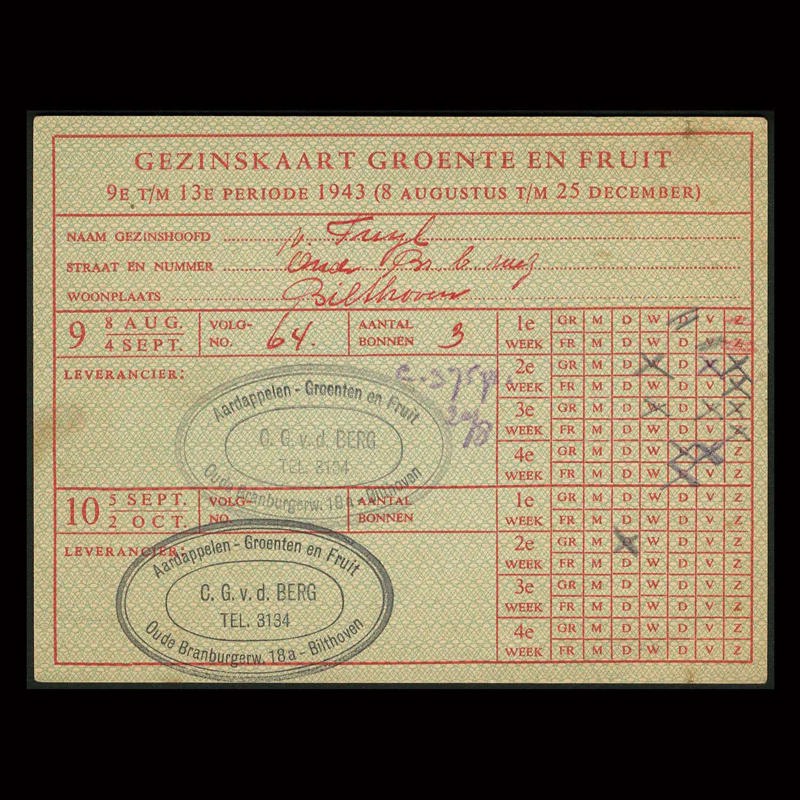 GEZINSKAART GROENTE EN FRUIT
9E T/M 13E PERIODE 1943 (8 AUGUSTUS T/M 25 DECEMBER)
NAAM GEZINSHOOFD
STRAAT EN NUMMER Oude
WOONPLAATS Bilthoven
9 8 AUG. 4 SEPT. VOLG-NO. 64. AANTAL BONNEN 3
LEVERANCIER:
Aardappelen - Groenten en Fruit
C. G. v. d. BERG
TEL. 3134
Oude Branburgerw. 18a - Bilthoven
1e WEEK GR M D W D V Z
FR M D W D V Z
2e WEEK GR M D W D V Z
FR M D W D V Z
3e WEEK GR M D W D V Z
FR M D W D V Z
4e WEEK GR M D W D V Z
FR M D W D V Z
10 5 SEPT. 2 OCT. VOLG-NO. AANTAL BONNEN
LEVERANCIER:
Aardappelen - Groenten en Fruit
C. G. v. d. BERG
TEL. 3134
Oude Branburgerw. 18a - Bilthoven
1e WEEK GR M D W D V Z
FR M D W D V Z
2e WEEK GR M D W D V Z
FR M D W D V Z
3e WEEK GR M D W D V Z
FR M D W D V Z
4e WEEK GR M D W D V Z
FR M D W D V Z